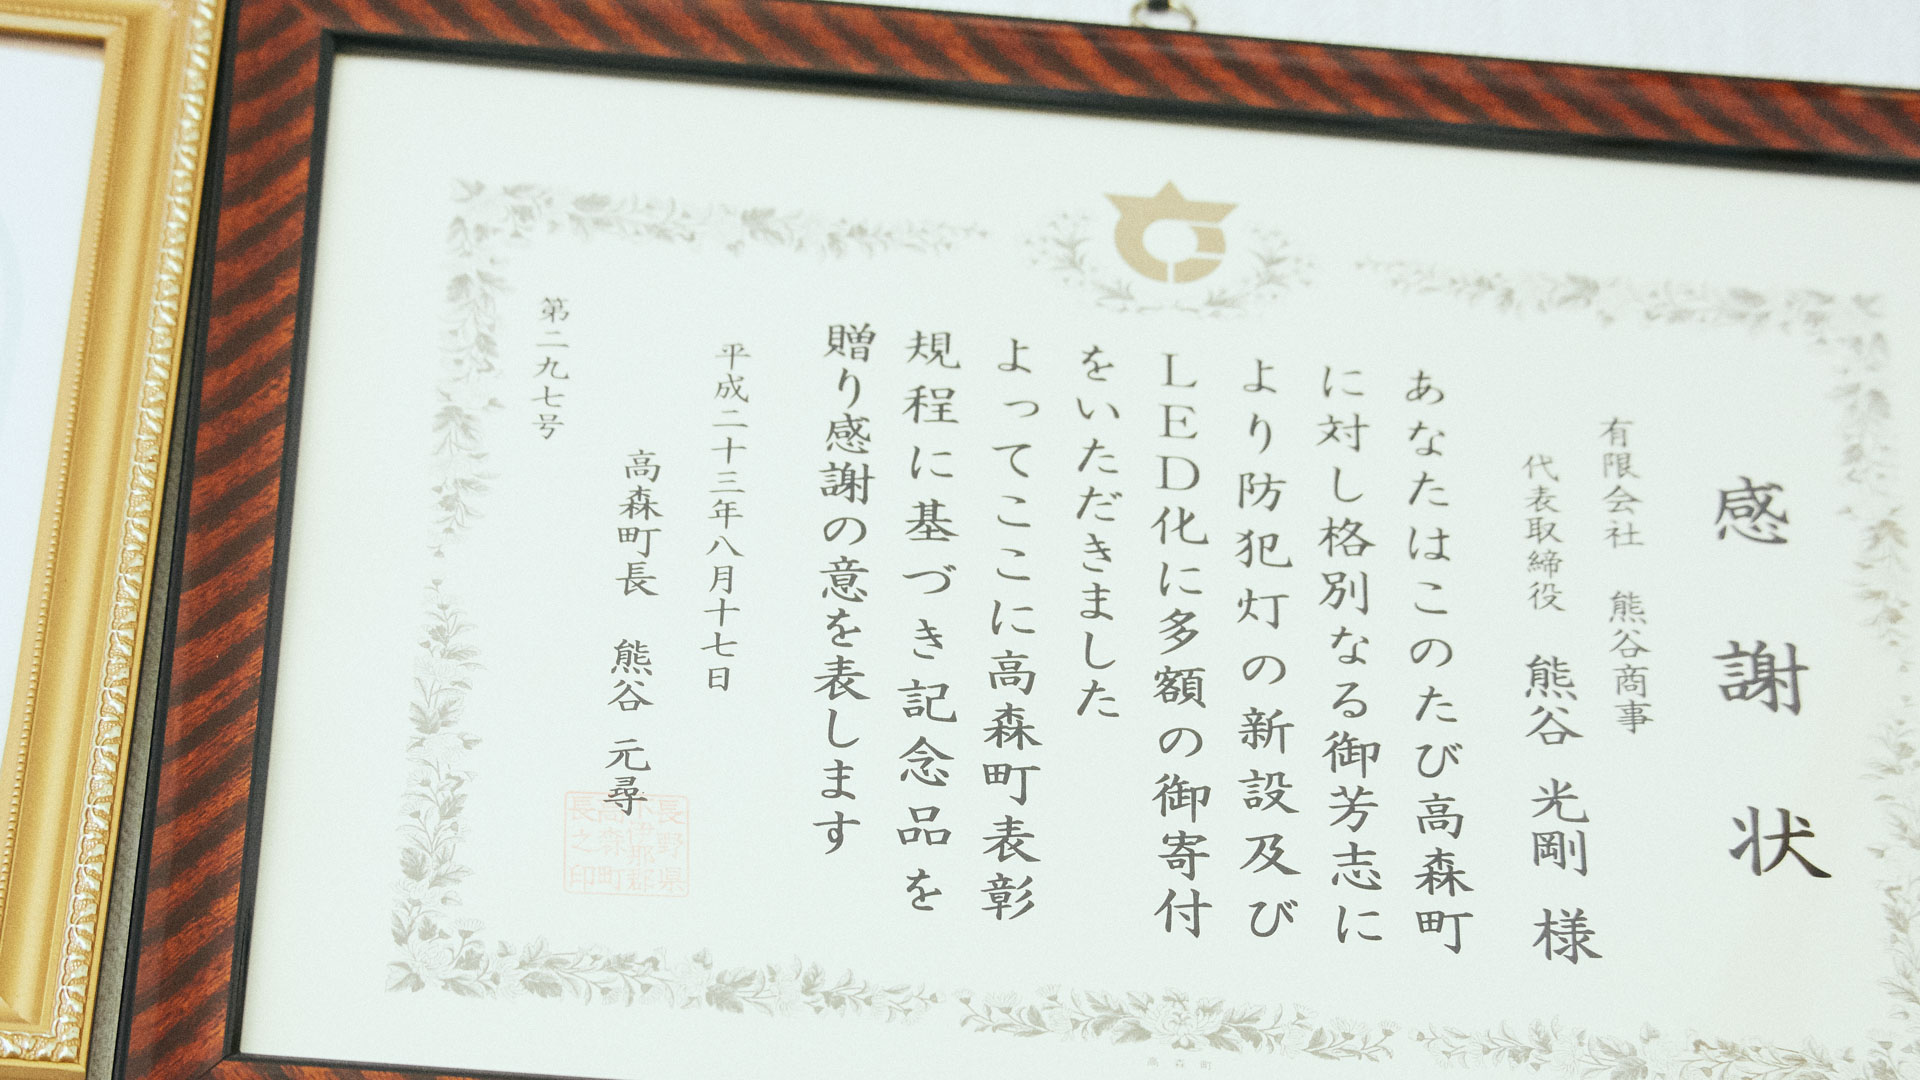 感謝状
有限会社 熊谷商事
代表取締役 熊谷光剛様
あなたはこのたび高森町
に対し格別なる御芳志に
より防犯灯の新設及び
LED化に多額の御寄付
をいただきました
よってここに高森町表彰
規程に基づき記念品を
贈り感謝の意を表します
平成二十三年八月十七日
高森町長 熊谷元尋
長野県
下伊那郡
高森町
長之印
第二九七号
高森町